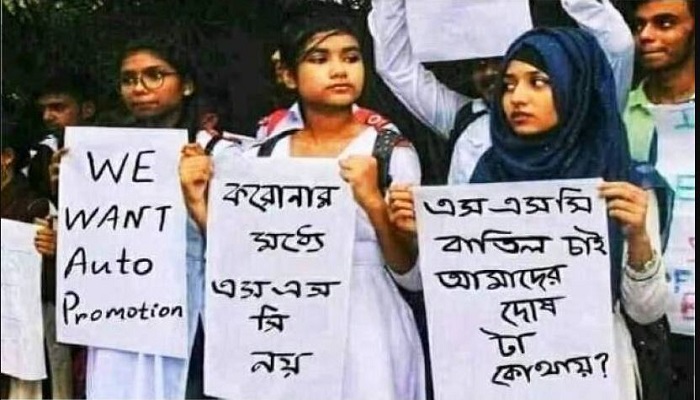 WE
WANT
Auto
Promotion
করোনার
মধ্যে
এসএস
সি
নয়
এসএসসি
বাতিল চাই
আমাদের
দোষ
টা
কোথায়?